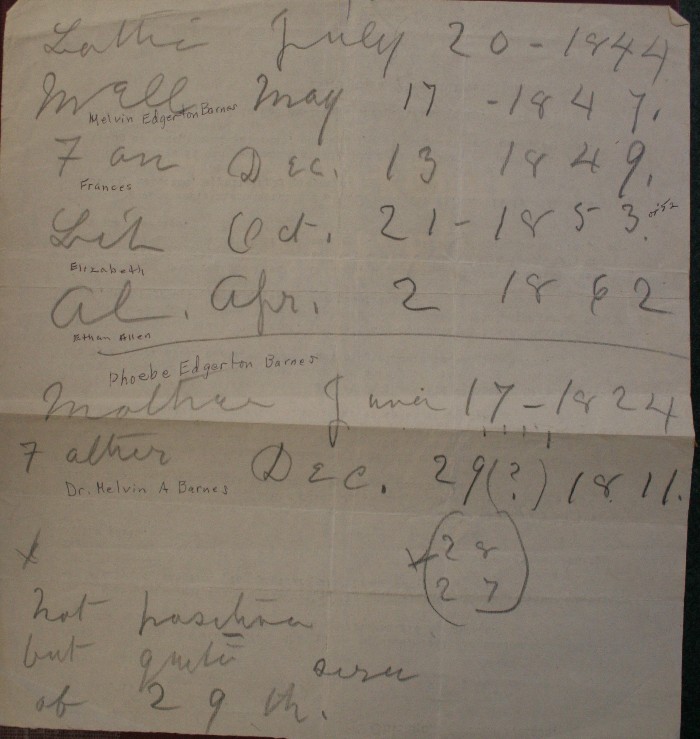 Lottie July 20 - 1844
Mell May 17 - 1847.
Melvin Edgerton Barnes
Fan Dec. 13 1849.
Frances
Lib Oct. 21 - 1853. or 52
Elizabeth
Al. Apr. 2 1862
Ethan Allen
Phoebe Edgerton Barnes
Mother June 17 - 1824
Father Dec. 29 (?) 1811.
Dr. Melvin A Barnes
x 28
27
x
not positive
but quite sure
of 29th.